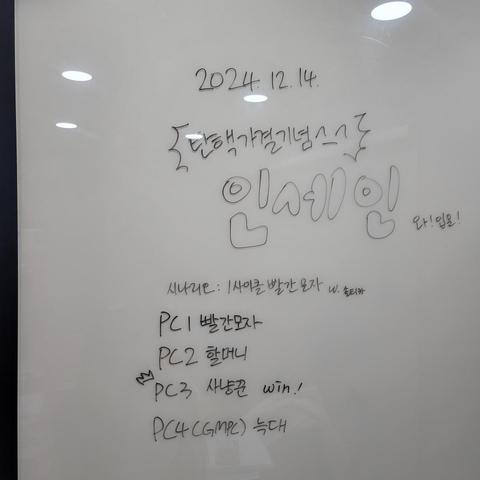 2024. 12. 14.
탄핵가결기념스스
인세인 와!입문!
시나리오: 1사이클 빨간모자 w.
PC1 빨간모자
PC2 할머니
PC3 사냥꾼 win!
PC4(GMPC) 늑대